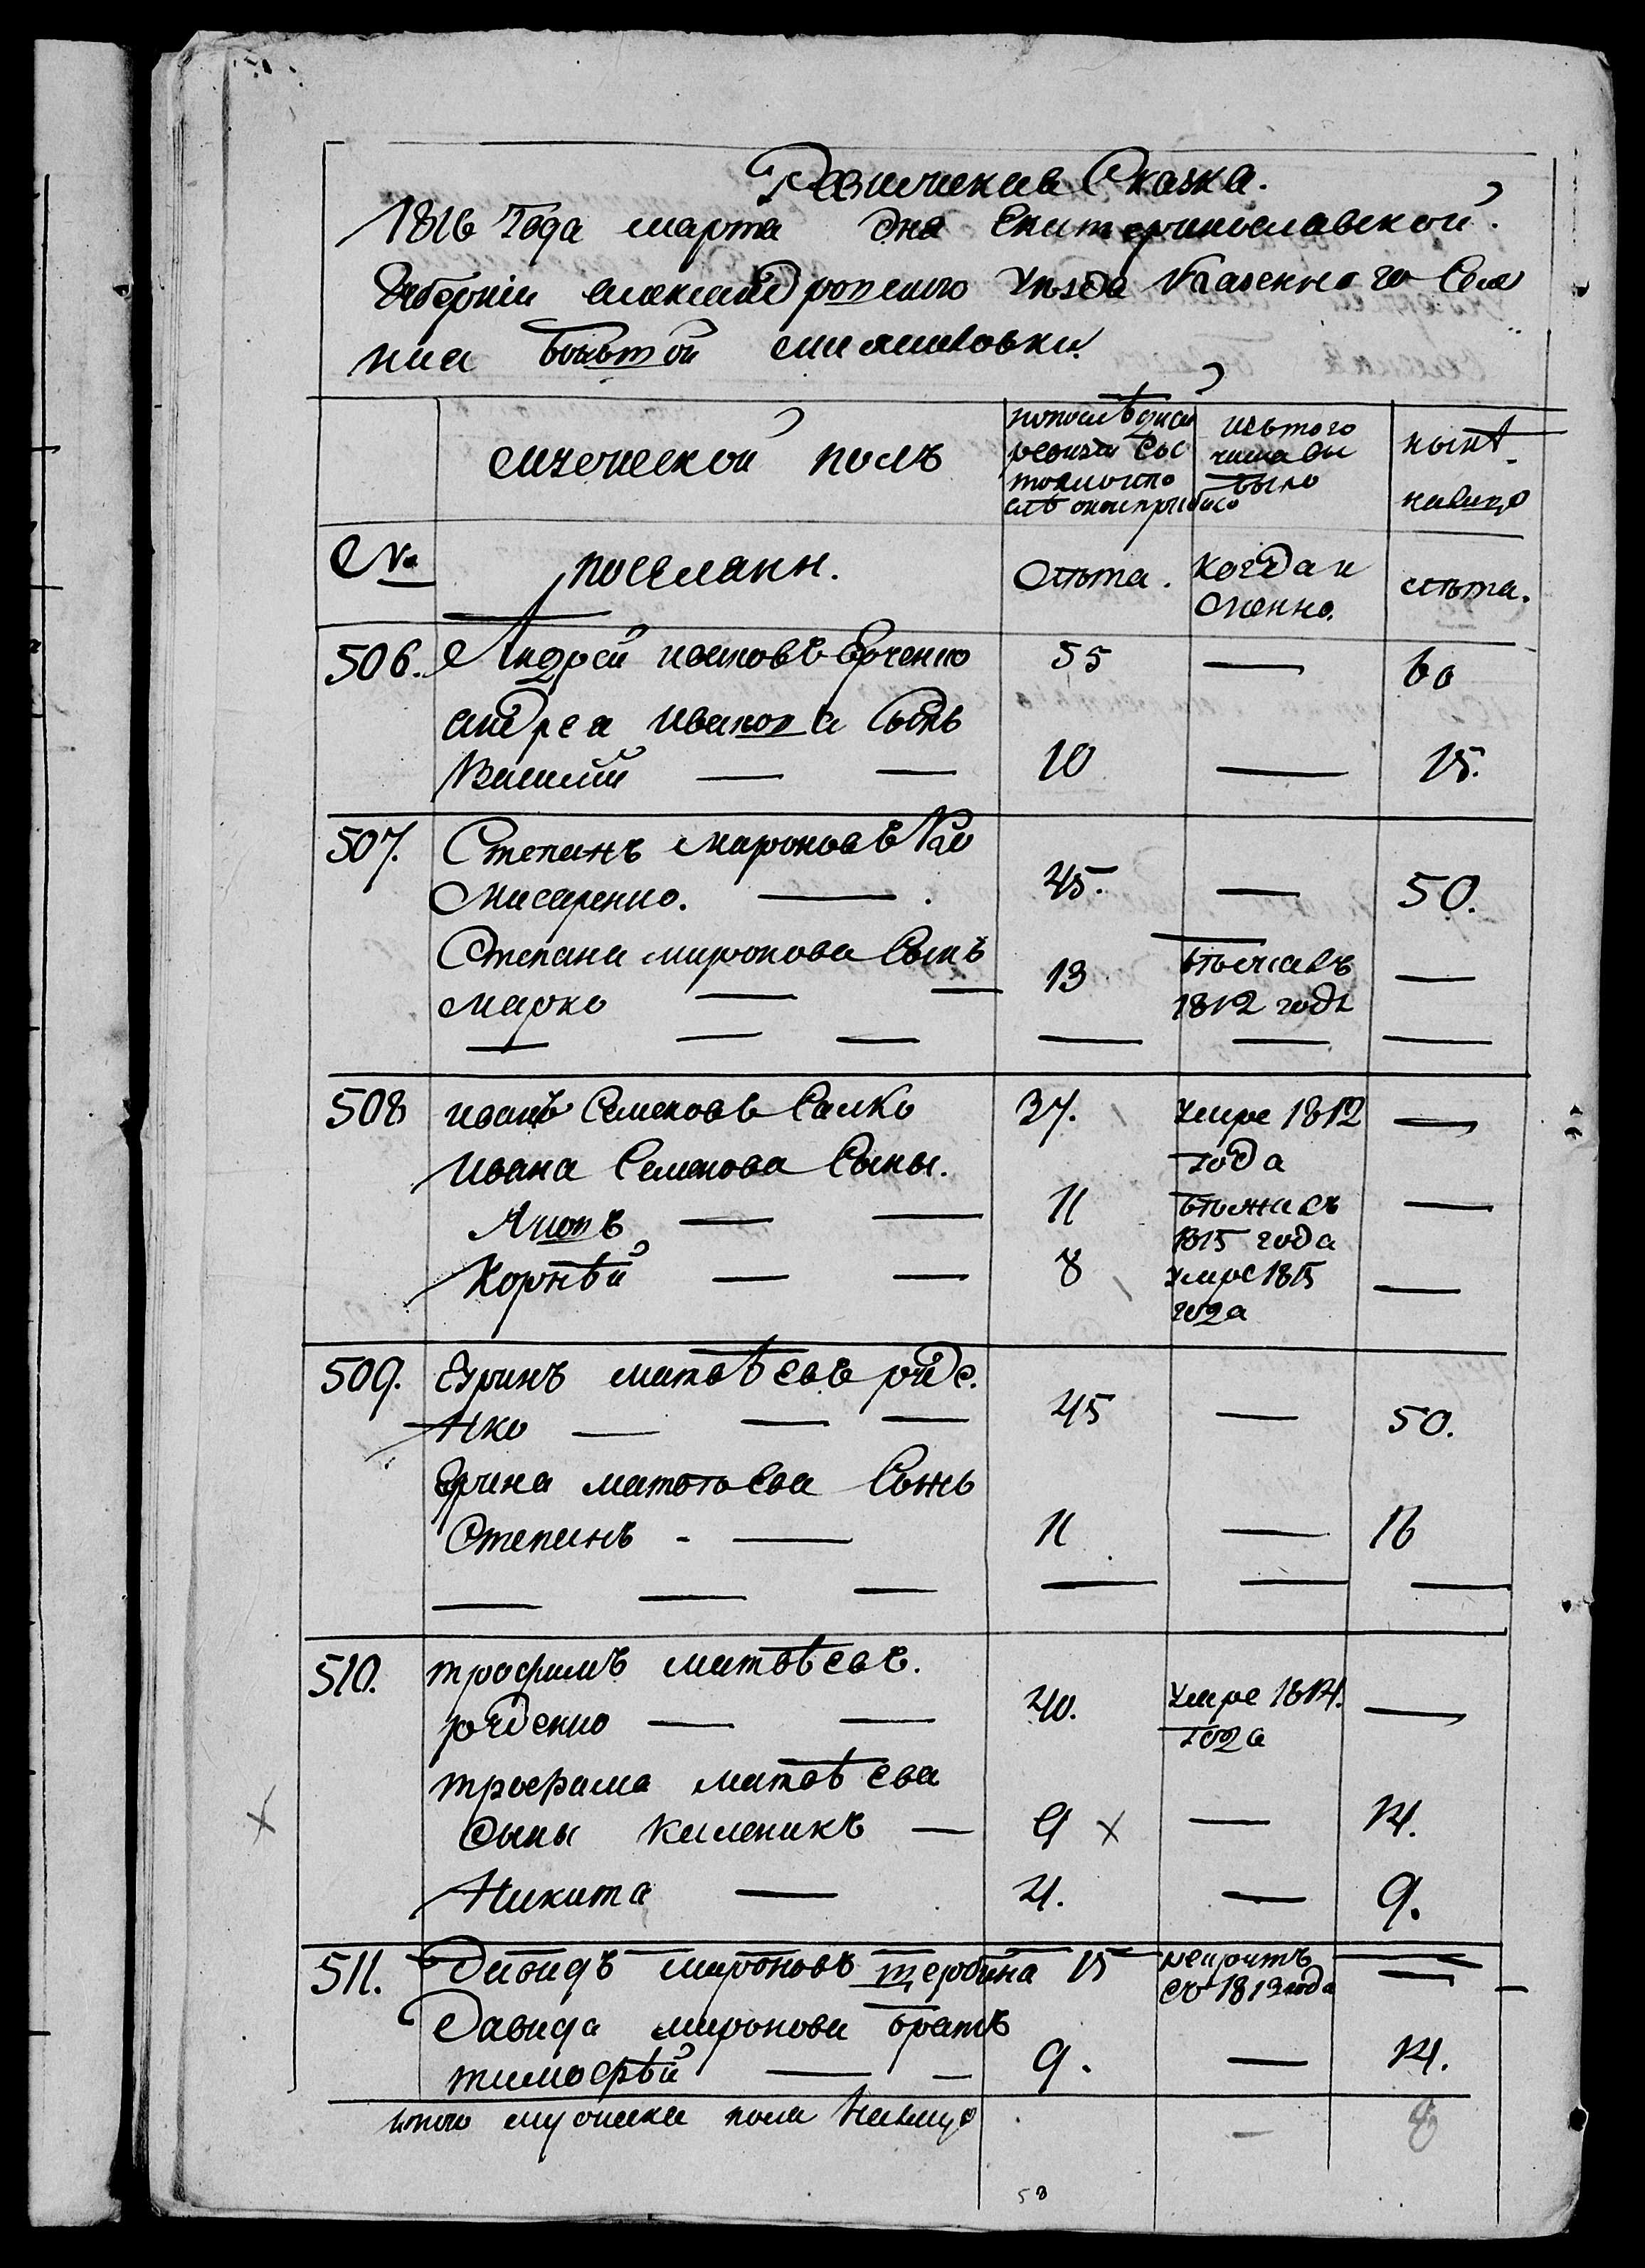 Ревижская Сказка.
1816 Года марта дня Екатеринославской
Губерніи александровского уезда Казенного Селе
ния
мужеской полъ
попослѣдней
ревизіи сос
тояло и по
слѣ оной прибыло
исътого
числа вы
было
нынѣ
налицо
№
поселяни.
Лѣта.
Когда и
именно.
лѣта.
506. Андрей ивановъ Юрченко 55 — 60
андрея иванова Сынъ
Василий — — 10 — 15.
507. Степанъ мироновъ
45. — 50.
Степана миронова Сынъ
марко — — 13 бѣжалъ —
1812 года
508 иванъ Семеновъ Салко 37. умре 1812 —
года
ивана Семенова Сыны.
— — 11 бѣжалъ —
1815 года
Корнѣй — — 8 умре 1815 —
года
509. матвѣевъ руде.
нко — — — 45 — 50.
матвѣева Сынъ
Степанъ - — 11 — 16
510. трофимъ матвѣевъ.
руденко — — 40. умре 1814. —
года
трофима матвѣева
Сыны Каленикъ — 9 × — 14.
Никита — 4. — 9.
511. Давидъ мироновъ щербина 15 рекрутъ —
съ 1813 года
Давида миронова братъ
тимофѣй — — 9. — 14.
итого мужеска пола налицо — 8
58